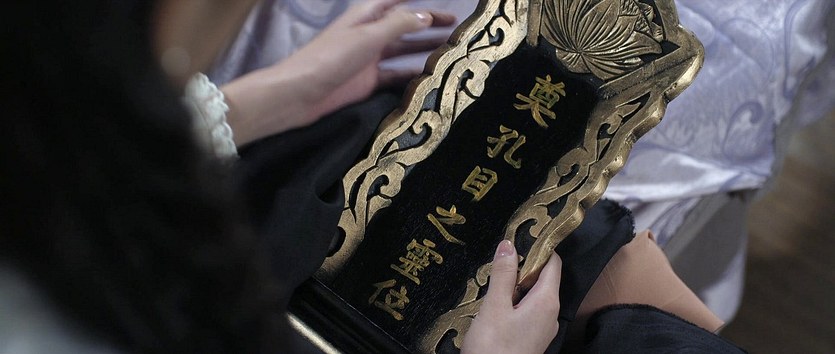 奠孔目之靈位